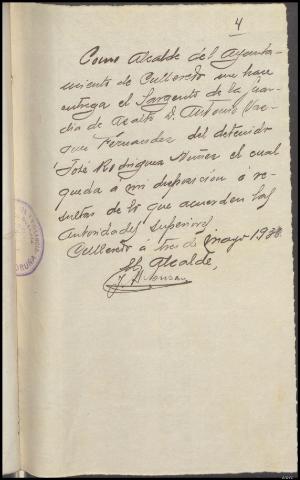 4
Como Alcalde del Ayunta-
miento de Culleredo me hace
entrega el Sargento de la Guar-
dia de Asalto D. Antonio Vaz-
quez Fernandez del detenido
José Rodriguez Nuñez el cual
queda a mi disposición a re-
sultas de lo que acuerden las
Autoridades Superiores
Culleredo a tres de mayo 193
El Alcalde,
CORUÑA